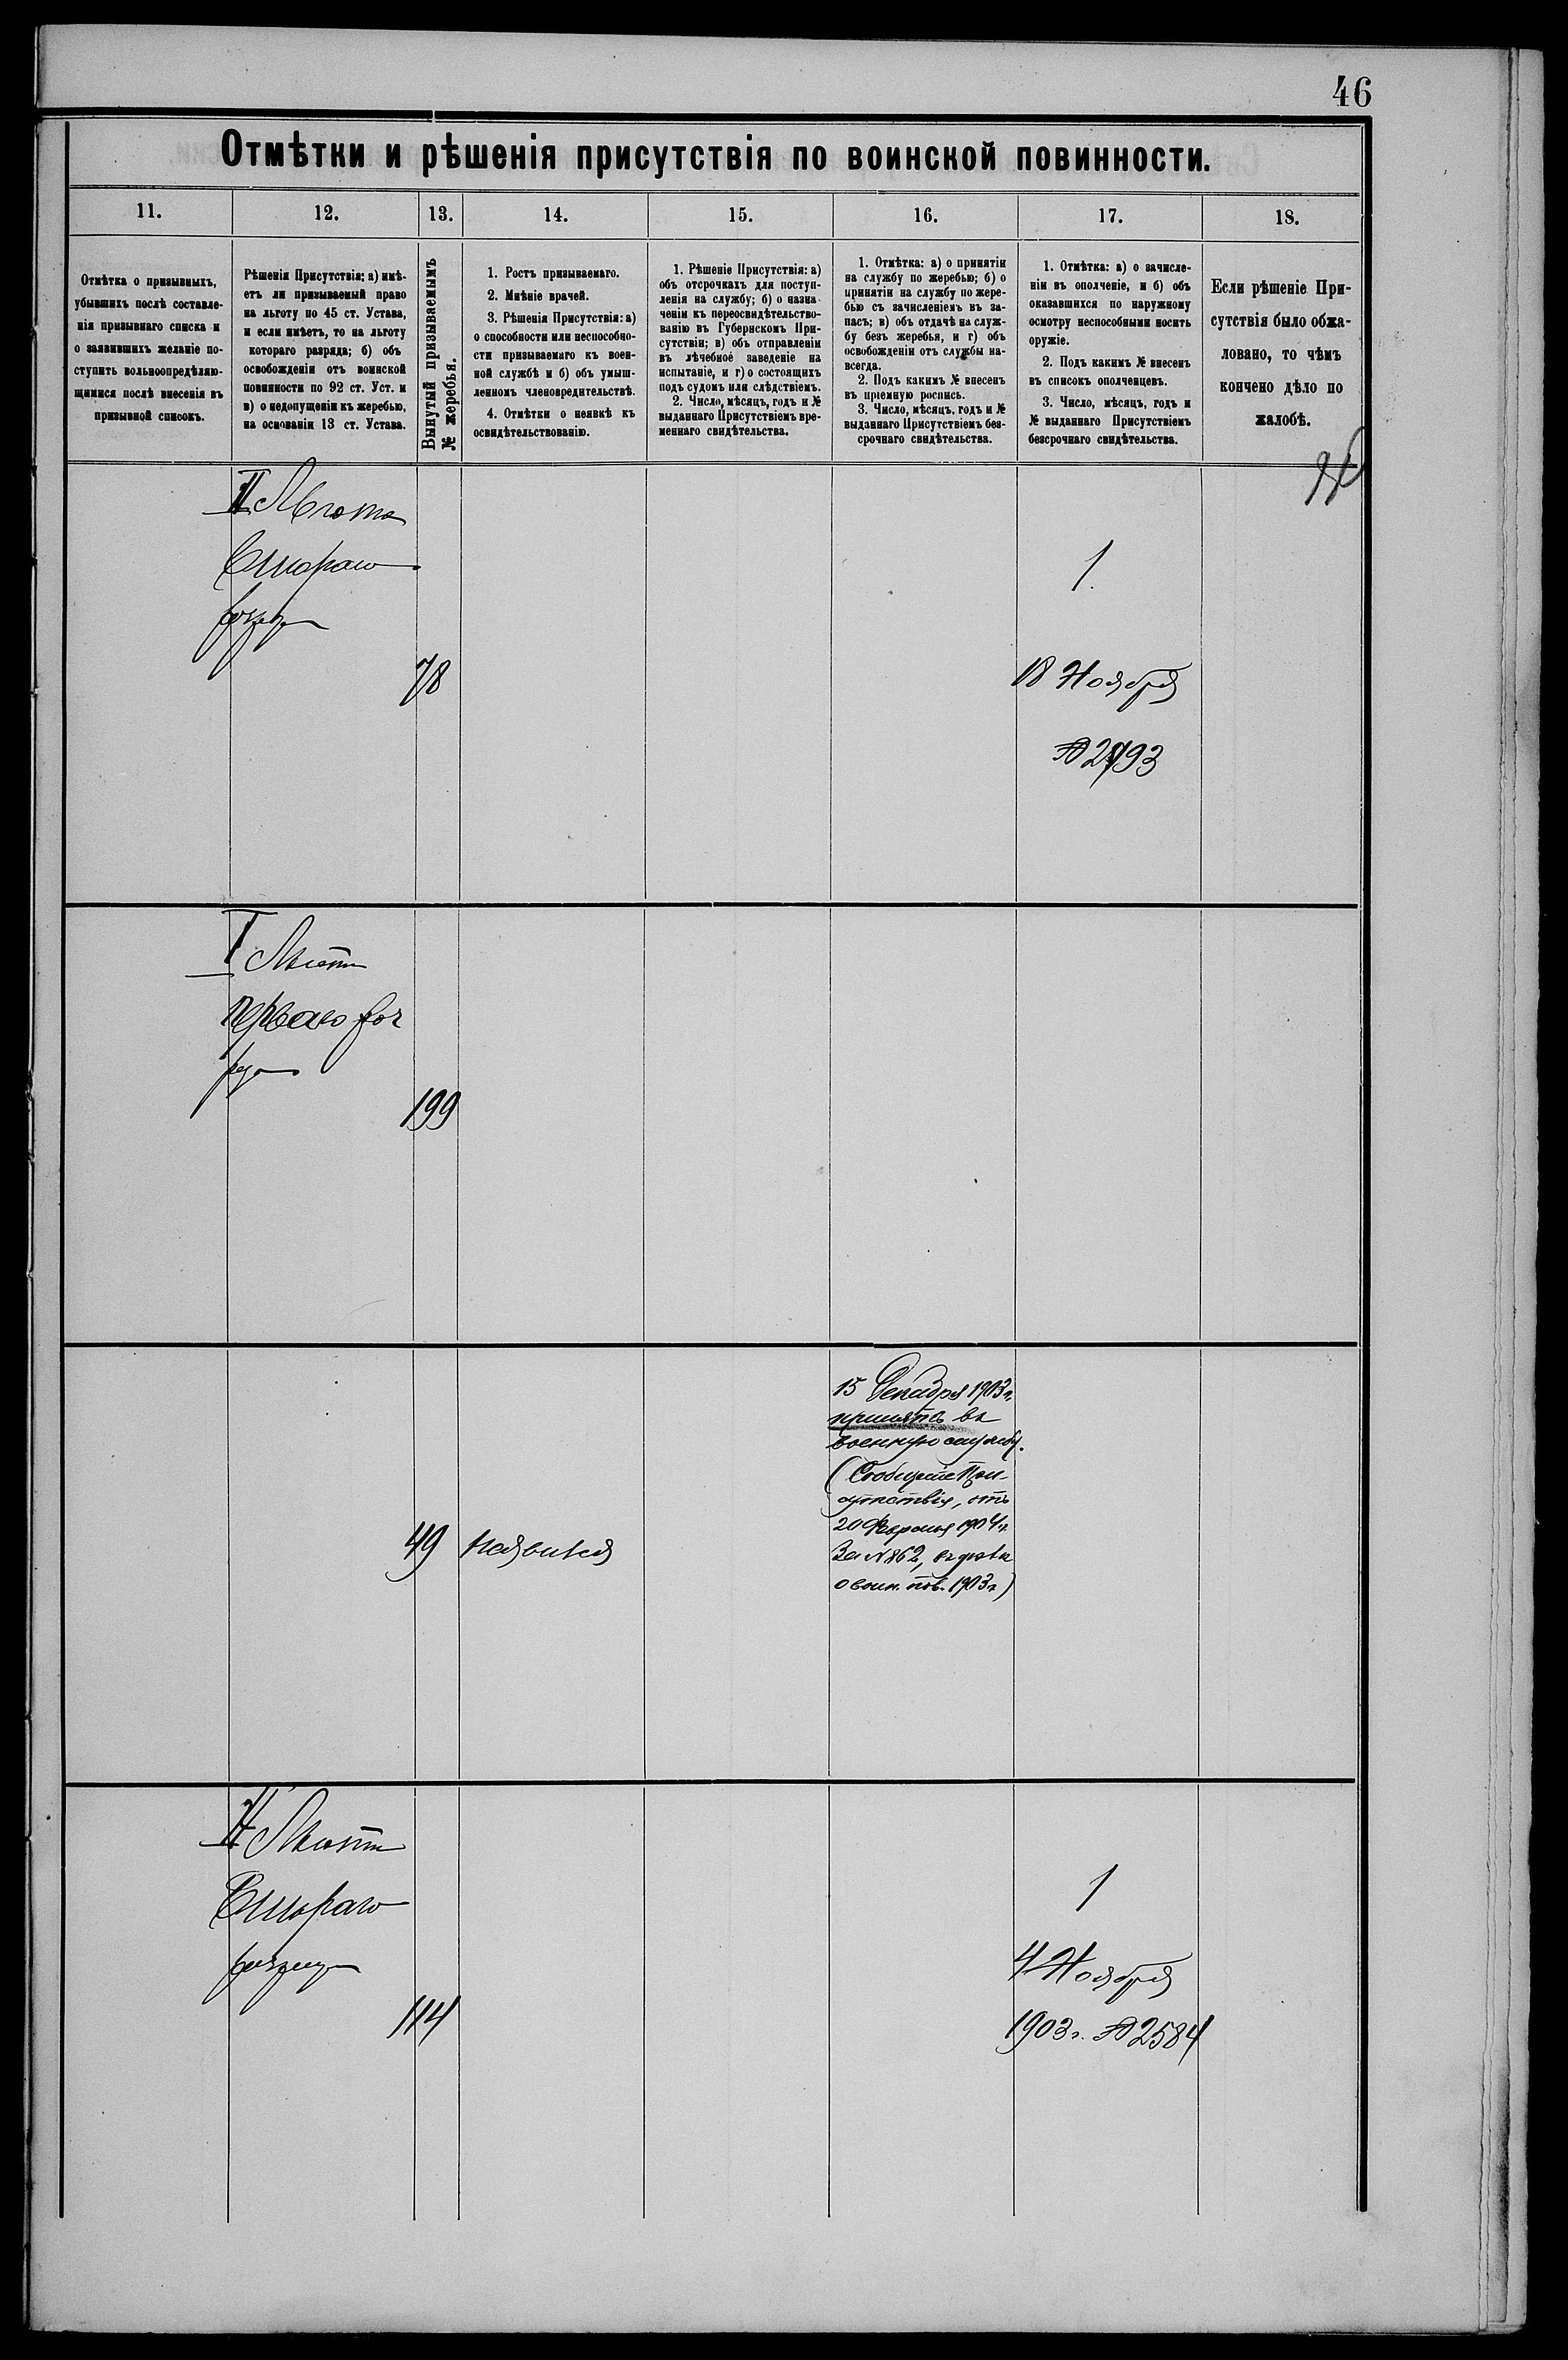 46
Отмѣтки и рѣшенія присутствія по воинской повинности.
11.
12.
13.
14.
15.
16.
17.
18.
Отмѣтка о призывныхъ,
убывшихъ послѣ составле-
нія призывнаго списка и
о заявившихъ желаніе по-
ступить вольноопредѣляю-
щимися послѣ внесенія въ
призывной списокъ.
Рѣшенія Присутствія: а) имѣ-
етъ ли призываемый право
на льготу по 45 ст. Устава,
и если имѣетъ, то на льготу
котораго разряда; б) объ
освобожденіи отъ воинской
повинности по 92 ст. Уст. и
в) о недопущеніи къ жеребью,
на основаніи 13 ст. Устава.
Вынутый призываемымъ
№ жеребья.
1. Ростъ призываемаго.
2. Мнѣніе врачей.
3. Рѣшенія Присутствія: а)
о способности или неспособно-
сти призываемаго къ воен-
ной службѣ и б) объ умыш-
ленномъ членовредительствѣ.
4. Отмѣтки о неявкѣ къ
освидѣтельствованію.
1. Рѣшеніе Присутствія: а)
объ отсрочкахъ для поступ-
ленія на службу; б) о назна-
ченіи къ переосвидѣтельство-
ванію въ Губернскомъ При-
сутствіи; в) объ отправленіи
въ лѣчебное заведеніе на
испытаніе, и г) о состоящихъ
подъ судомъ или слѣдствіемъ.
2. Число, мѣсяцъ, годъ и №
выданнаго Присутствіемъ вре-
меннаго свидѣтельства.
1. Отмѣтка: а) о принятіи
на службу по жеребью; б) о
принятіи на службу по жере-
бью съ зачисленіемъ въ за-
пасъ; в) объ отдачѣ на служ-
бу безъ жеребья, и г) объ
освобожденіи отъ службы на-
всегда.
2. Подъ какимъ № внесенъ
въ пріемную роспись.
3. Число, мѣсяцъ, годъ и №
выданнаго Присутствіемъ без-
срочнаго свидѣтельства.
1. Отмѣтка: а) о зачисле-
ніи въ ополченіе, и б) объ
оказавшихся по наружному
осмотру неспособными носить
оружіе.
2. Подъ какимъ № внесенъ
въ списокъ ополченцевъ.
3. Число, мѣсяцъ, годъ и
№ выданнаго Присутствіемъ
безсрочнаго свидѣтельства.
Если рѣшеніе При-
сутствія было обжа-
ловано, то чѣмъ
кончено дѣло по
жалобѣ.
II Льгота
Второго
разряда
78
1.
18 Ноября
№ 2793
I Льгота
перваго раз
ряда
199
49
неявился
15 Декабря 1903 г.
принятъ въ
военную службу.
(Сообщеніе При-
сутствія, отъ
20 Февраля 1904 г.
за № 862, въ дѣлѣ
о воин. пов. 1903 г.)
II Льгота
Второго
разряда
114
1
4 Ноября
1903 г. № 2584